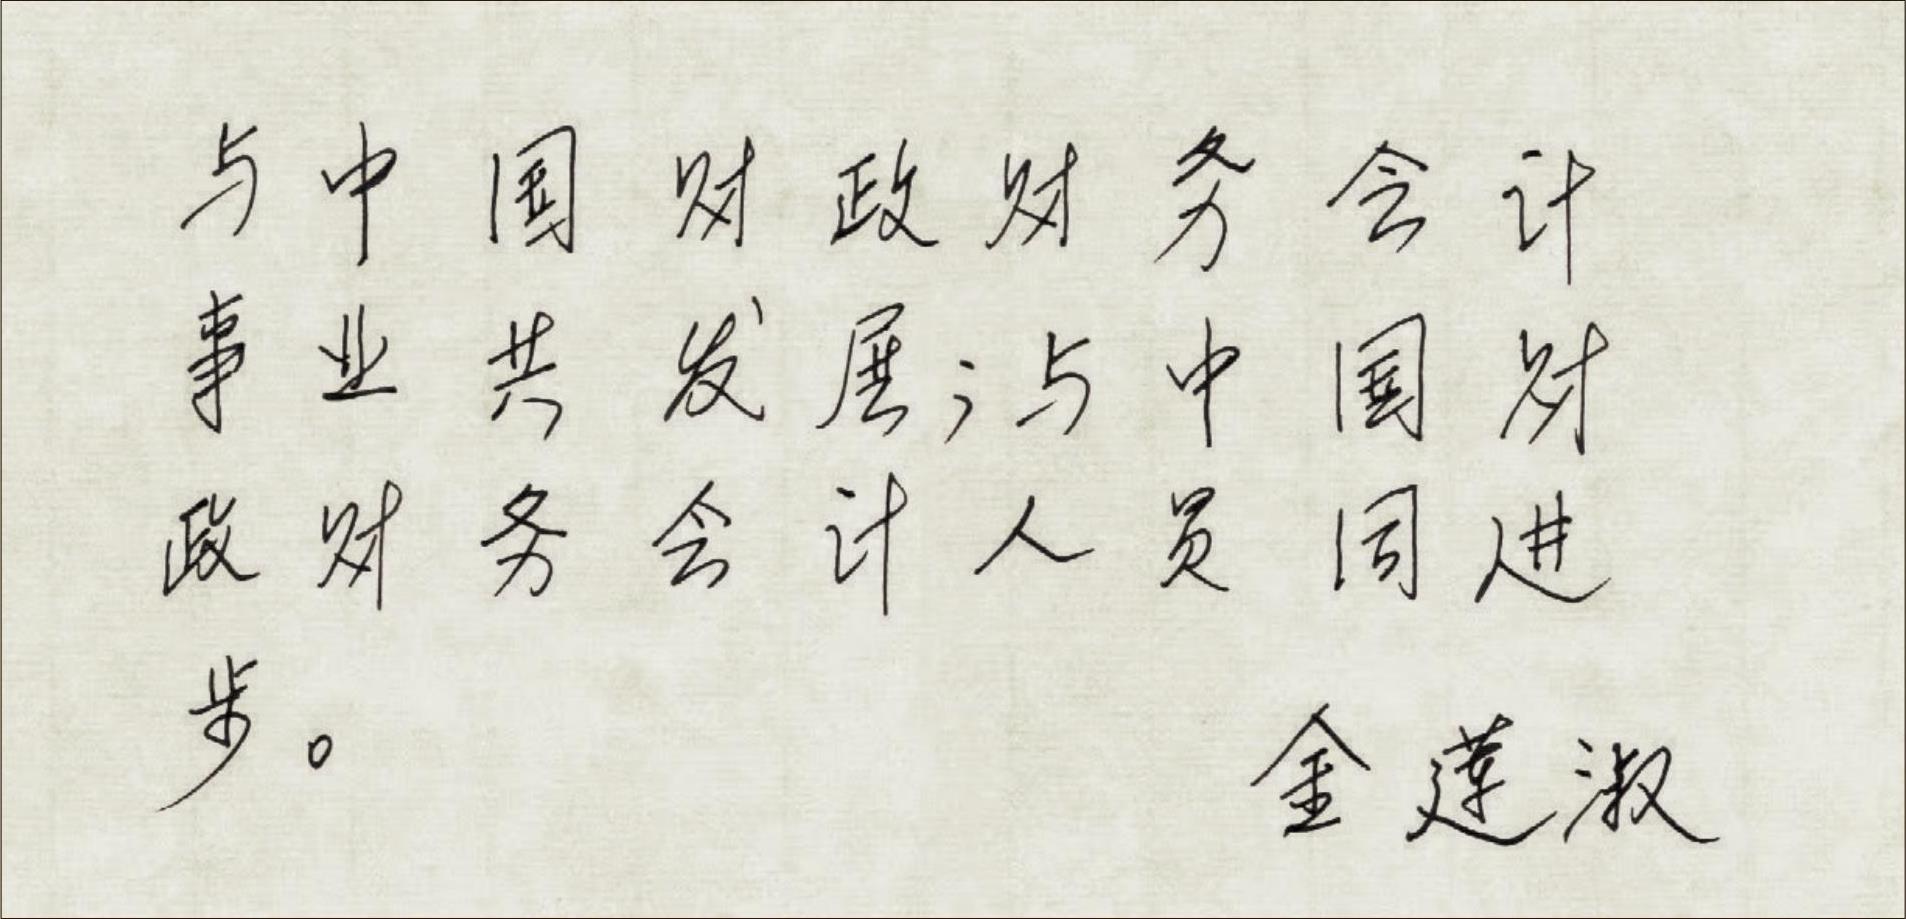 与中国财政财务会计
事业共发展;与中国财
政财务会计人员同进
步。
金莲淑